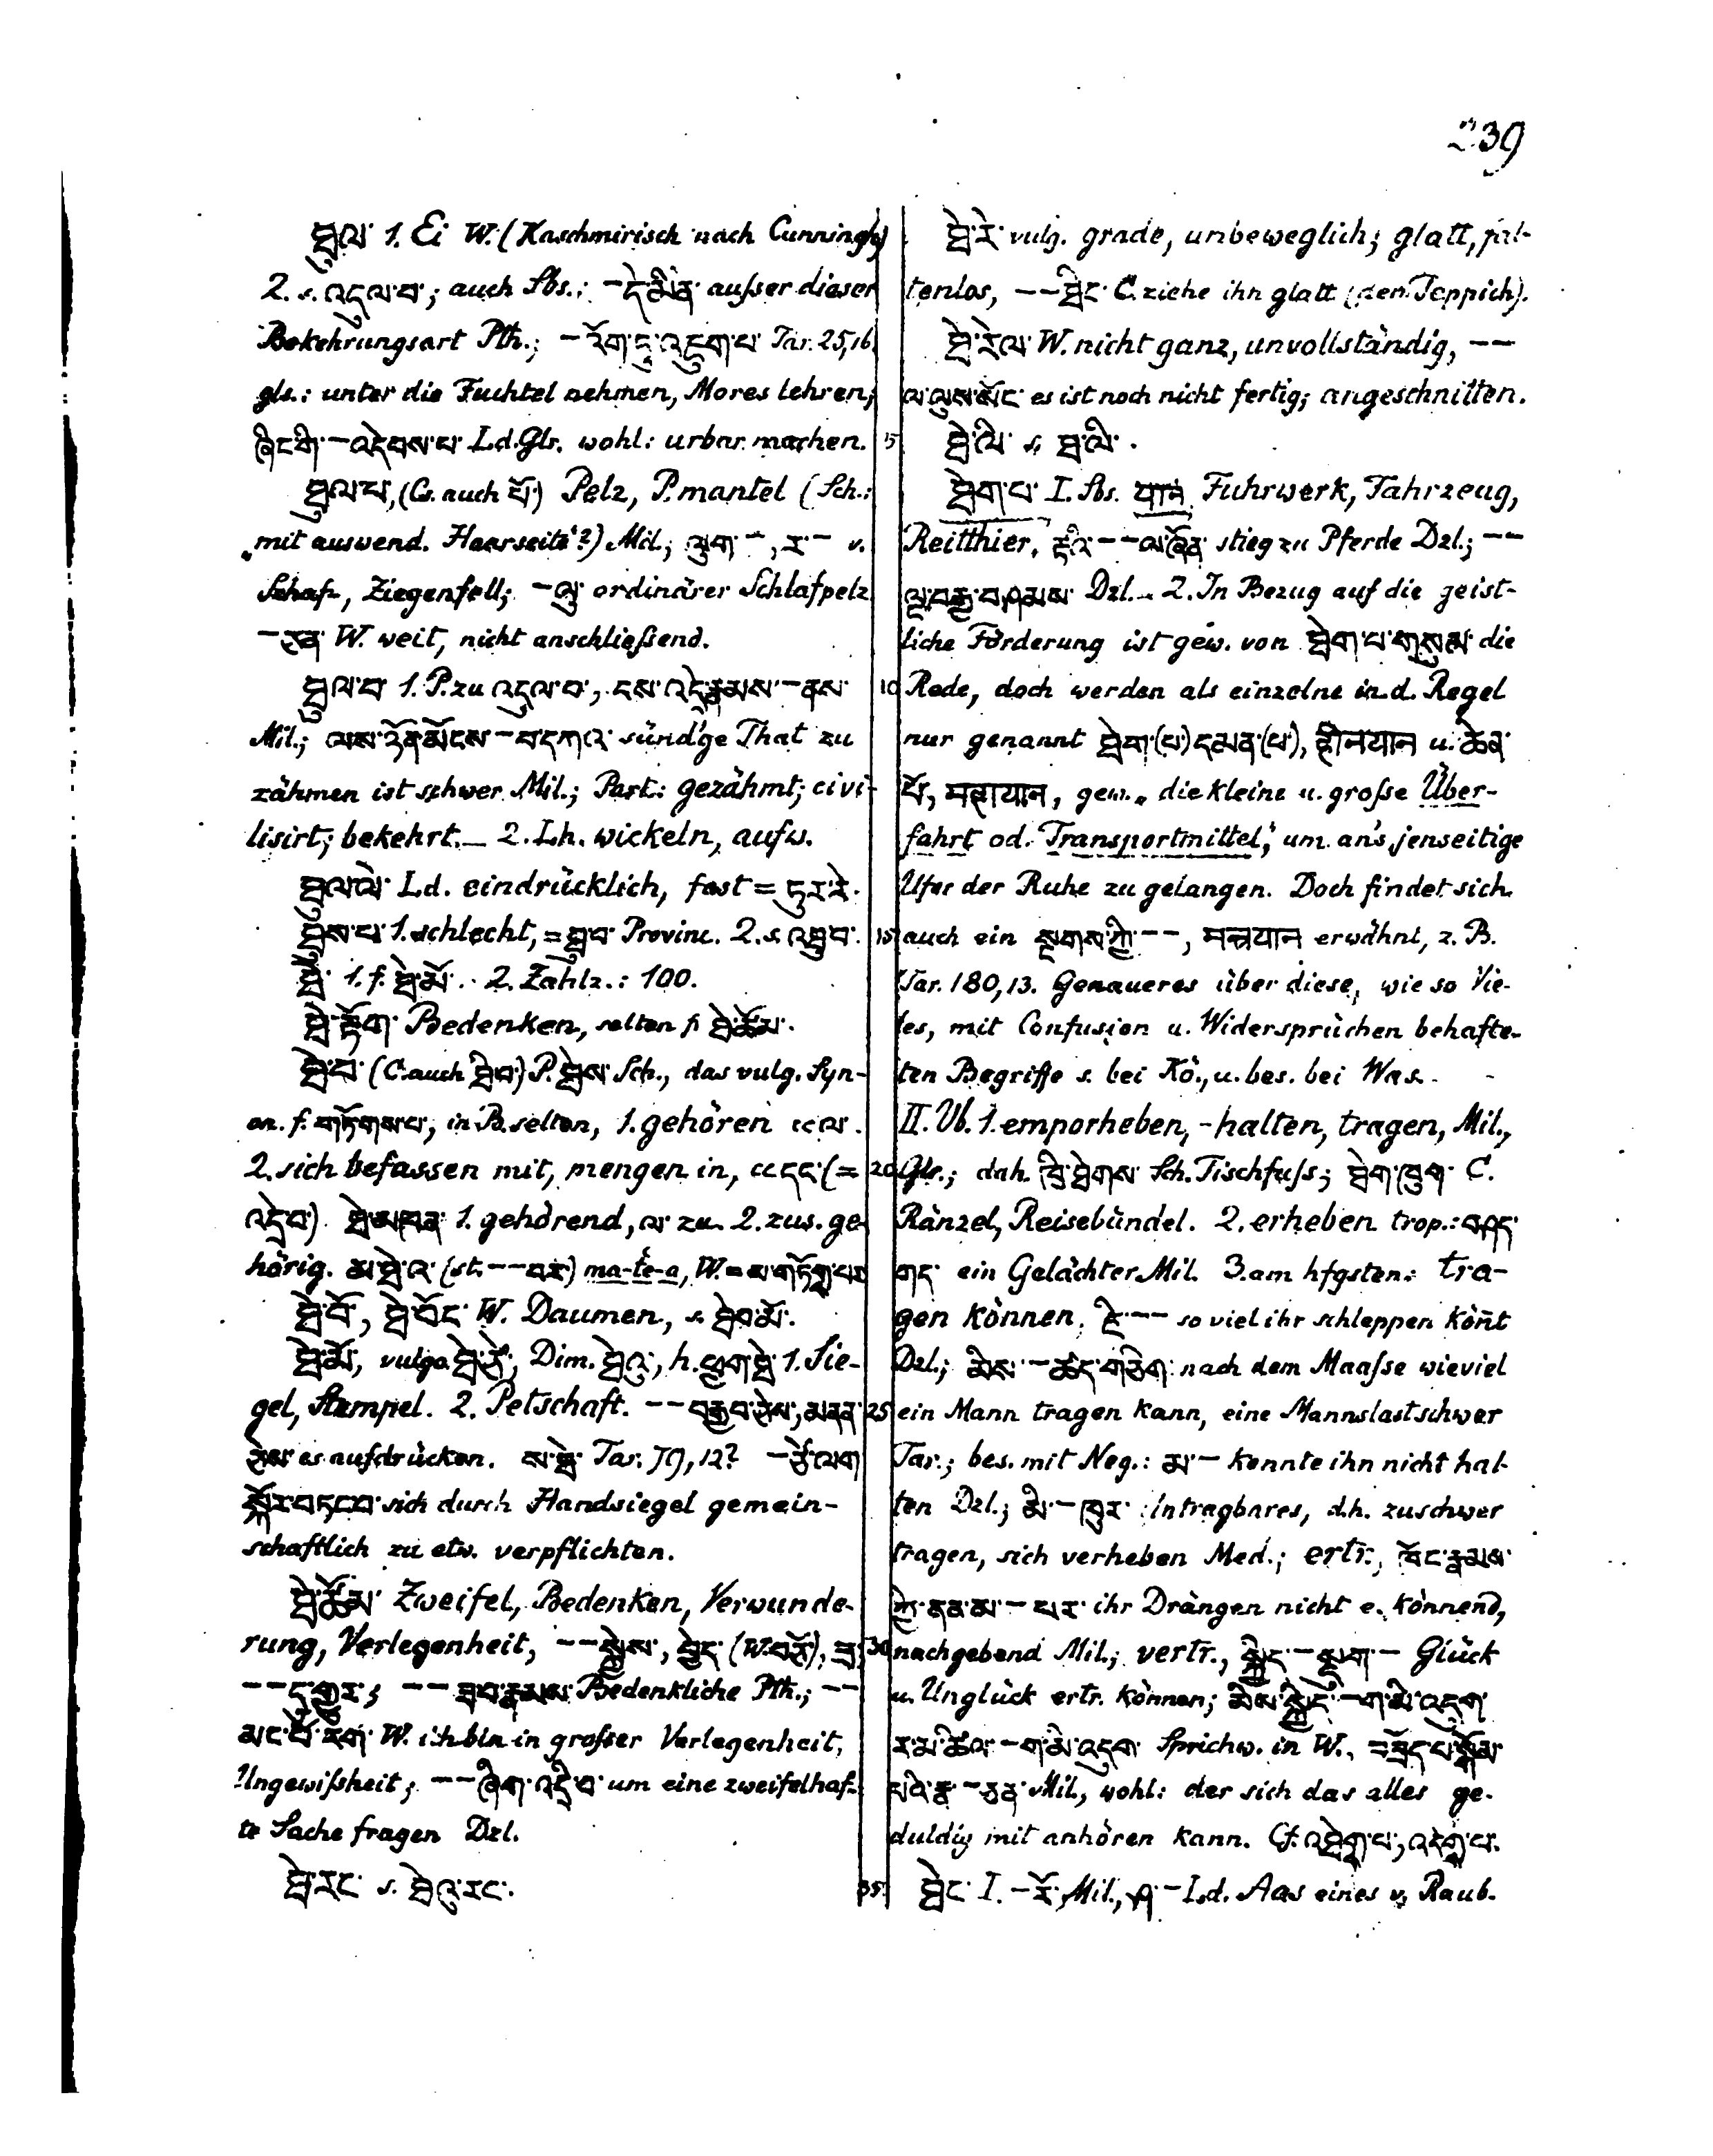 239
ཐུལ་ 1. Ei W. (Kaschmirisch nach Cunningh)
2. s. འདུལ་བ་; auch Sbs.: – དེ་མིན་ ausser dieser
Bekehrungsart Pth.; – འོག་ཏུ་འཇུག་པ་ Tar. 25,16.
gls.: unter die Fuchtel nehmen, Mores lehren;
ཞིང་གི་ – འདེབས་པ་ Ld. Glr. wohl: urbar machen.
ཐུལ་པ་, (Cs. auch པོ་) Pelz, P.mantel (Sch.:
„mit auswend. Haarseite“?) Mil.; ལུག་ –, ར་ – v.
Schaf-, Ziegenfell; – ལུ་ ordinärer Schlafpelz
– W. weit, nicht anschließend.
ཐུལ་བ་ 1. P. zu འདུལ་བ་, དས་འདི་རྣམས་ – ནས་
Mil.; ལས་ཉོན་མོངས་ – བ་དཀའ་ sünd'ge That zu
zähmen ist schwer Mil.; Part.: gezähmt; civi-
lisirt; bekehrt. – 2. Lh. wickeln, aufw.
ཐུལ་ལེ་ Ld. eindrücklich, fast = ཏུར་རེ་.
ཐུས་པ་ 1. schlecht, = ཐུབ་ Provinc. 2. s. འཐུབ་.
ཐེ་ 1. f. ཐེ་མོ་. 2. Zahlz.: 100.
ཐེ་ཏོག་ Bedenken, selten f. ཐེ་ཚོམ་.
ཐེ་བ་ (C. auch ཐེབ་) P. ཐེས་ Sch., das vulg. Syn-
on. f. གཏོགས་པ་, in B. selten, 1. gehören cc ལ་.
2. sich befassen mit, mengen in, cc དང་ (=
འདྲེ་བ་). ཐེ་མཁན་ 1. gehörend, ལ་ zu. 2. zus. ge-
hörig. མ་ཐེ་འ་ (st. – – བར་) ma-te-a, W. = མ་གཏོགས་པར
ཐེ་བོ་, ཐེ་བོང་ W. Daumen, s. ཐེབ་མོ་.
ཐེ་མོ་, vulgo ཐེ་ཙེ་, Dim. ཐེའུ་, h. ཕྱག་ཐེ་ 1. Sie-
gel, Stempel. 2. Petschaft. – – བརྒྱབ་ཅེས་, མནན་
ཅེས་ es aufdrücken. ས་ཐེ་ Tar. 79,12? – ཙེ་ལག
སྦྱོར་བཏང་བ་ sich durch Handsiegel gemein-
schaftlich zu etw. verpflichten.
ཐེ་ཚོམ་ Zweifel, Bedenken, Verwunde-
rung, Verlegenheit, – – སྐྱེས་, བྱེད་ (W. བཅོ་), ཟ་;
– – དུ་གྱུར་; – – ཟབ་རྣམས་ Bedenkliche Pth.; – –
མང་པོ་རག་ W. ich bin in grosser Verlegenheit,
Ungewißheit; – – ཞིག་འདྲི་བ་ um eine zweifelhaf-
te Sache fragen Dzl.
ཐེ་རང་ s. ཐེའུ་རང་.
ཐེ་རེ་ vulg. grade, unbeweglich; glatt, fal-
tenlos, – – ཐིང་ C. ziehe ihn glatt (den Teppich).
ཐེ་རེལ་ W. nicht ganz, unvollständig, – –
ལ་ལུས་སོང་ es ist noch nicht fertig; angeschnitten.
5 ཐེ་ལི་ s. ཐ་ལི་.
ཐེག་པ་ I. Sbs. यान Fuhrwerk, Fahrzeug,
Reitthier, རྟའི་ – – ལ་ཞོན་ stieg zu Pferde Dzl.; – –
ལྔ་བརྒྱ་བཤམས་ Dzl. – 2. In Bezug auf die geist-
liche Förderung ist gew. von ཐེག་པ་གསུམ་ die
10 Rede, doch werden als einzelne in d. Regel
nur genannt ཐེག་(པ་)དམན་(པ་), हीनयान u. ཆེན་
པོ་, महायान, gew. „die kleine u. grosse Über-
fahrt od. Transportmittel,“ um an's jenseitige
Ufer der Ruhe zu gelangen. Doch findet sich
15 auch ein སྔགས་ཀྱི་ – –, मन्त्रयान erwähnt, z. B.
Tar. 180,13. Genaueres über diese, wie so Vie-
les, mit Confusion u. Widersprüchen behafte-
ten Begriffe s. bei Kö., u. bes. bei Was.
II. Vb. 1. emporheben, -halten, tragen, Mil.,
20 Glr.; dah. ཁྲི་ཐེགས་ Sch. Tischfuss; ཐེག་ཁུག་ C.
Ränzel, Reisebündel. 2. erheben trop.: བཤད་
གད་ ein Gelächter Mil. 3. am hfgsten: tra-
gen können. ཇི་ – – so viel ihr schleppen könt
Dzl.; མིས་ – ཚད་གཅིག་ nach dem Maasse wieviel
25 ein Mann tragen kann, eine Mannslast schwer
Tar.; bes. mit Neg.: མ་ – konnte ihn nicht hal-
ten Dzl.; མི་ – ཁུར་ Untragbares, d.h. zu schwer
tragen, sich verheben Med.; ertr., ཁོང་རྣམས་
ཀྱི་ནན་མ་ – པར་ ihr Drängen nicht e. könnend,
30 nachgebend Mil.; vertr., སྐྱིད་ – སྡུག་ – Glück
u. Unglück ertr. können; མིས་སྐྱིད་ – ག་མི་འདུག་
ར་མ་ཚིལ་ – ག་མི་འདུག་ Sprichw. in W., བཟོད་པ་སྒོམ་
པའི་རྣ་ – ཅན་ Mil., wohl: der sich das alles ge-
duldig mit anhören kann. Cf. འཐེགས་པ་, འདེགས་པ་.
35 ཐེང་ I. – རོ་, Mil., ཤ་ – Ld. Aas eines v. Raub-